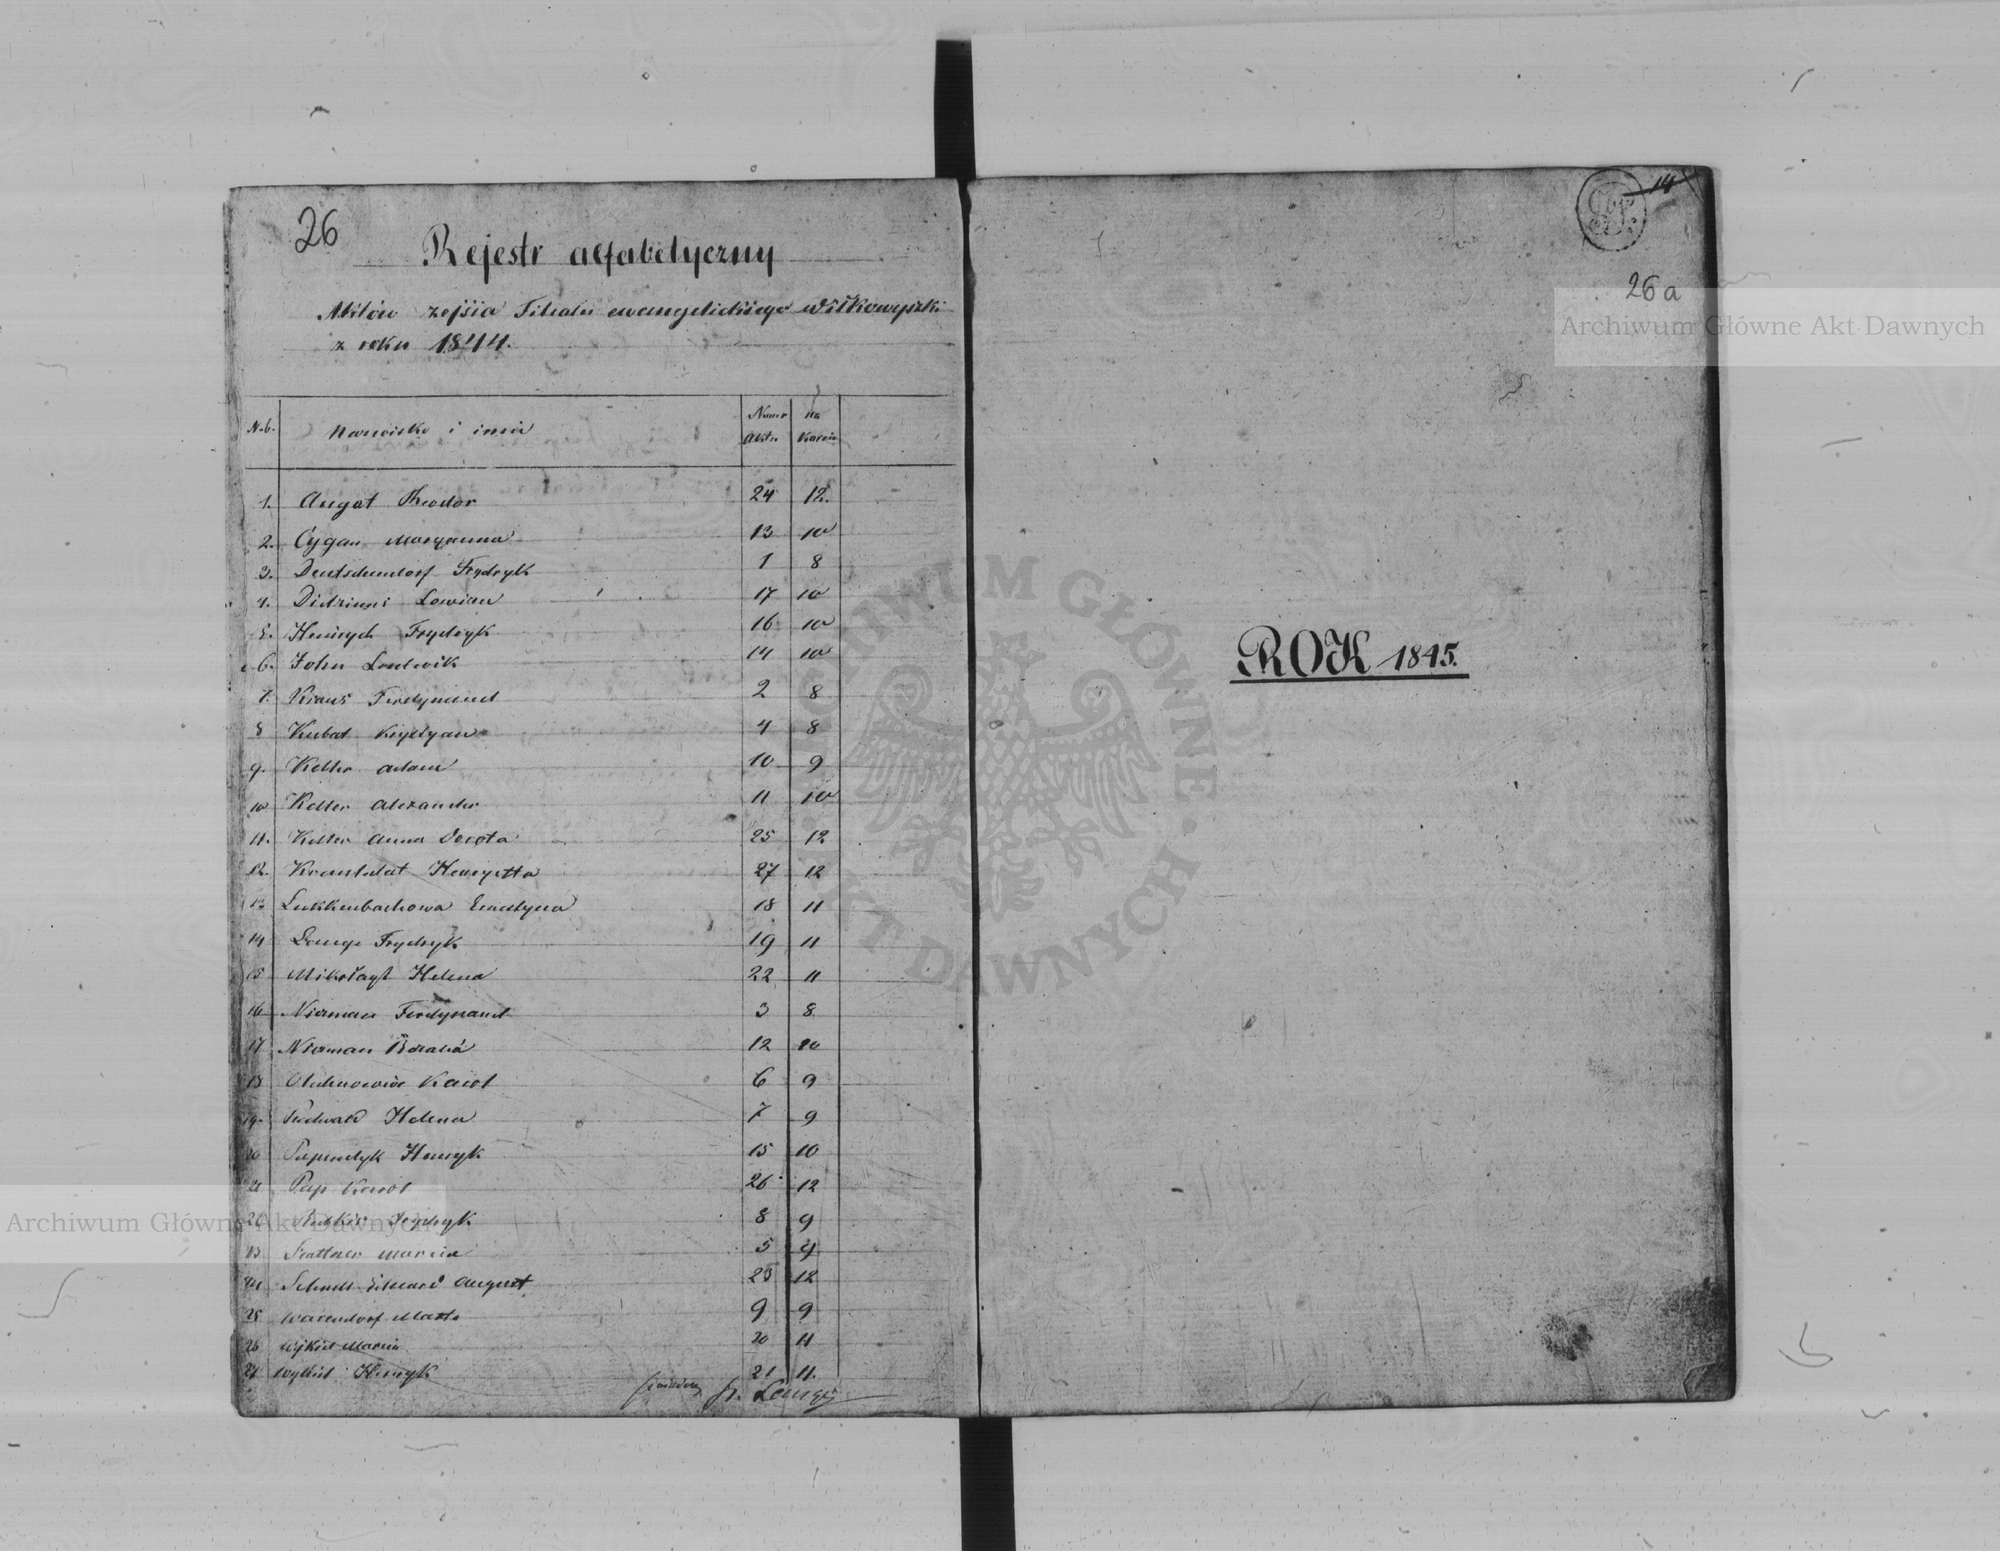 26
Rejestr alfabetyczny
Aktów zejścia Filiału ewangelickiego Wiłkowyszki
z roku 1844.
N.b. Nazwisko i imie Numer Aktu na karcie
1. August Theodor 24 12.
2. Cygan Maryanna 13 10
3. Deutschendorf Frydryk 1 8
4. 17 10
5. Henrych Frydryk 16 10
6. John Ludwik 14 10
7. Kraus Ferdynand 2 8
8 Kubat Krystyan 4 8
9. Keller Adam 10 9
10 Keller Alexander 11 10
11. Keller Anna Dorota 25 12
12. Henryetta 27 12
13 Ernestyna 18 11
14 Lange Frydryk 19 11
15 Mikołayt Helena 22 11
16 Nierman Ferdynand 3 8
17 Nierman 12 10
18 Karol 6 9
19. Helena 7 9
20 Papendyk Henryk 15 10
21 Pap Karol 26 12
22 Frydryk 8 9
23 Marcin 5 9
24 August 23 12
25 Warendorf 9 9
26 Marcin 20 11
27 Henryk 21 11.
Lange
14
26a
ROK 1845.
Archiwum Główne Akt Dawnych
Archiwum Główne Akt Dawnych
ARCHIWUM GŁÓWNE AKT DAWNYCH